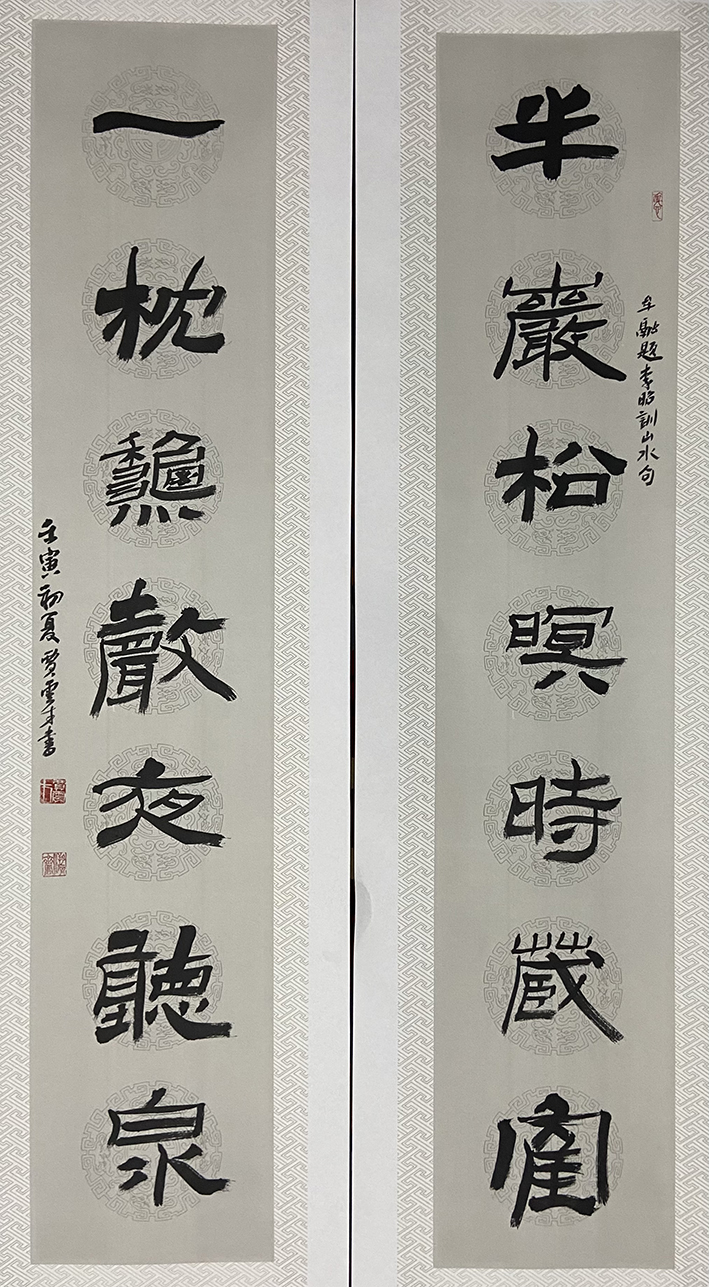 半巖松暝時藏隺
牟融題李昭訓山水句
一枕龝聲夜聽泉
壬寅初夏賈雲才書